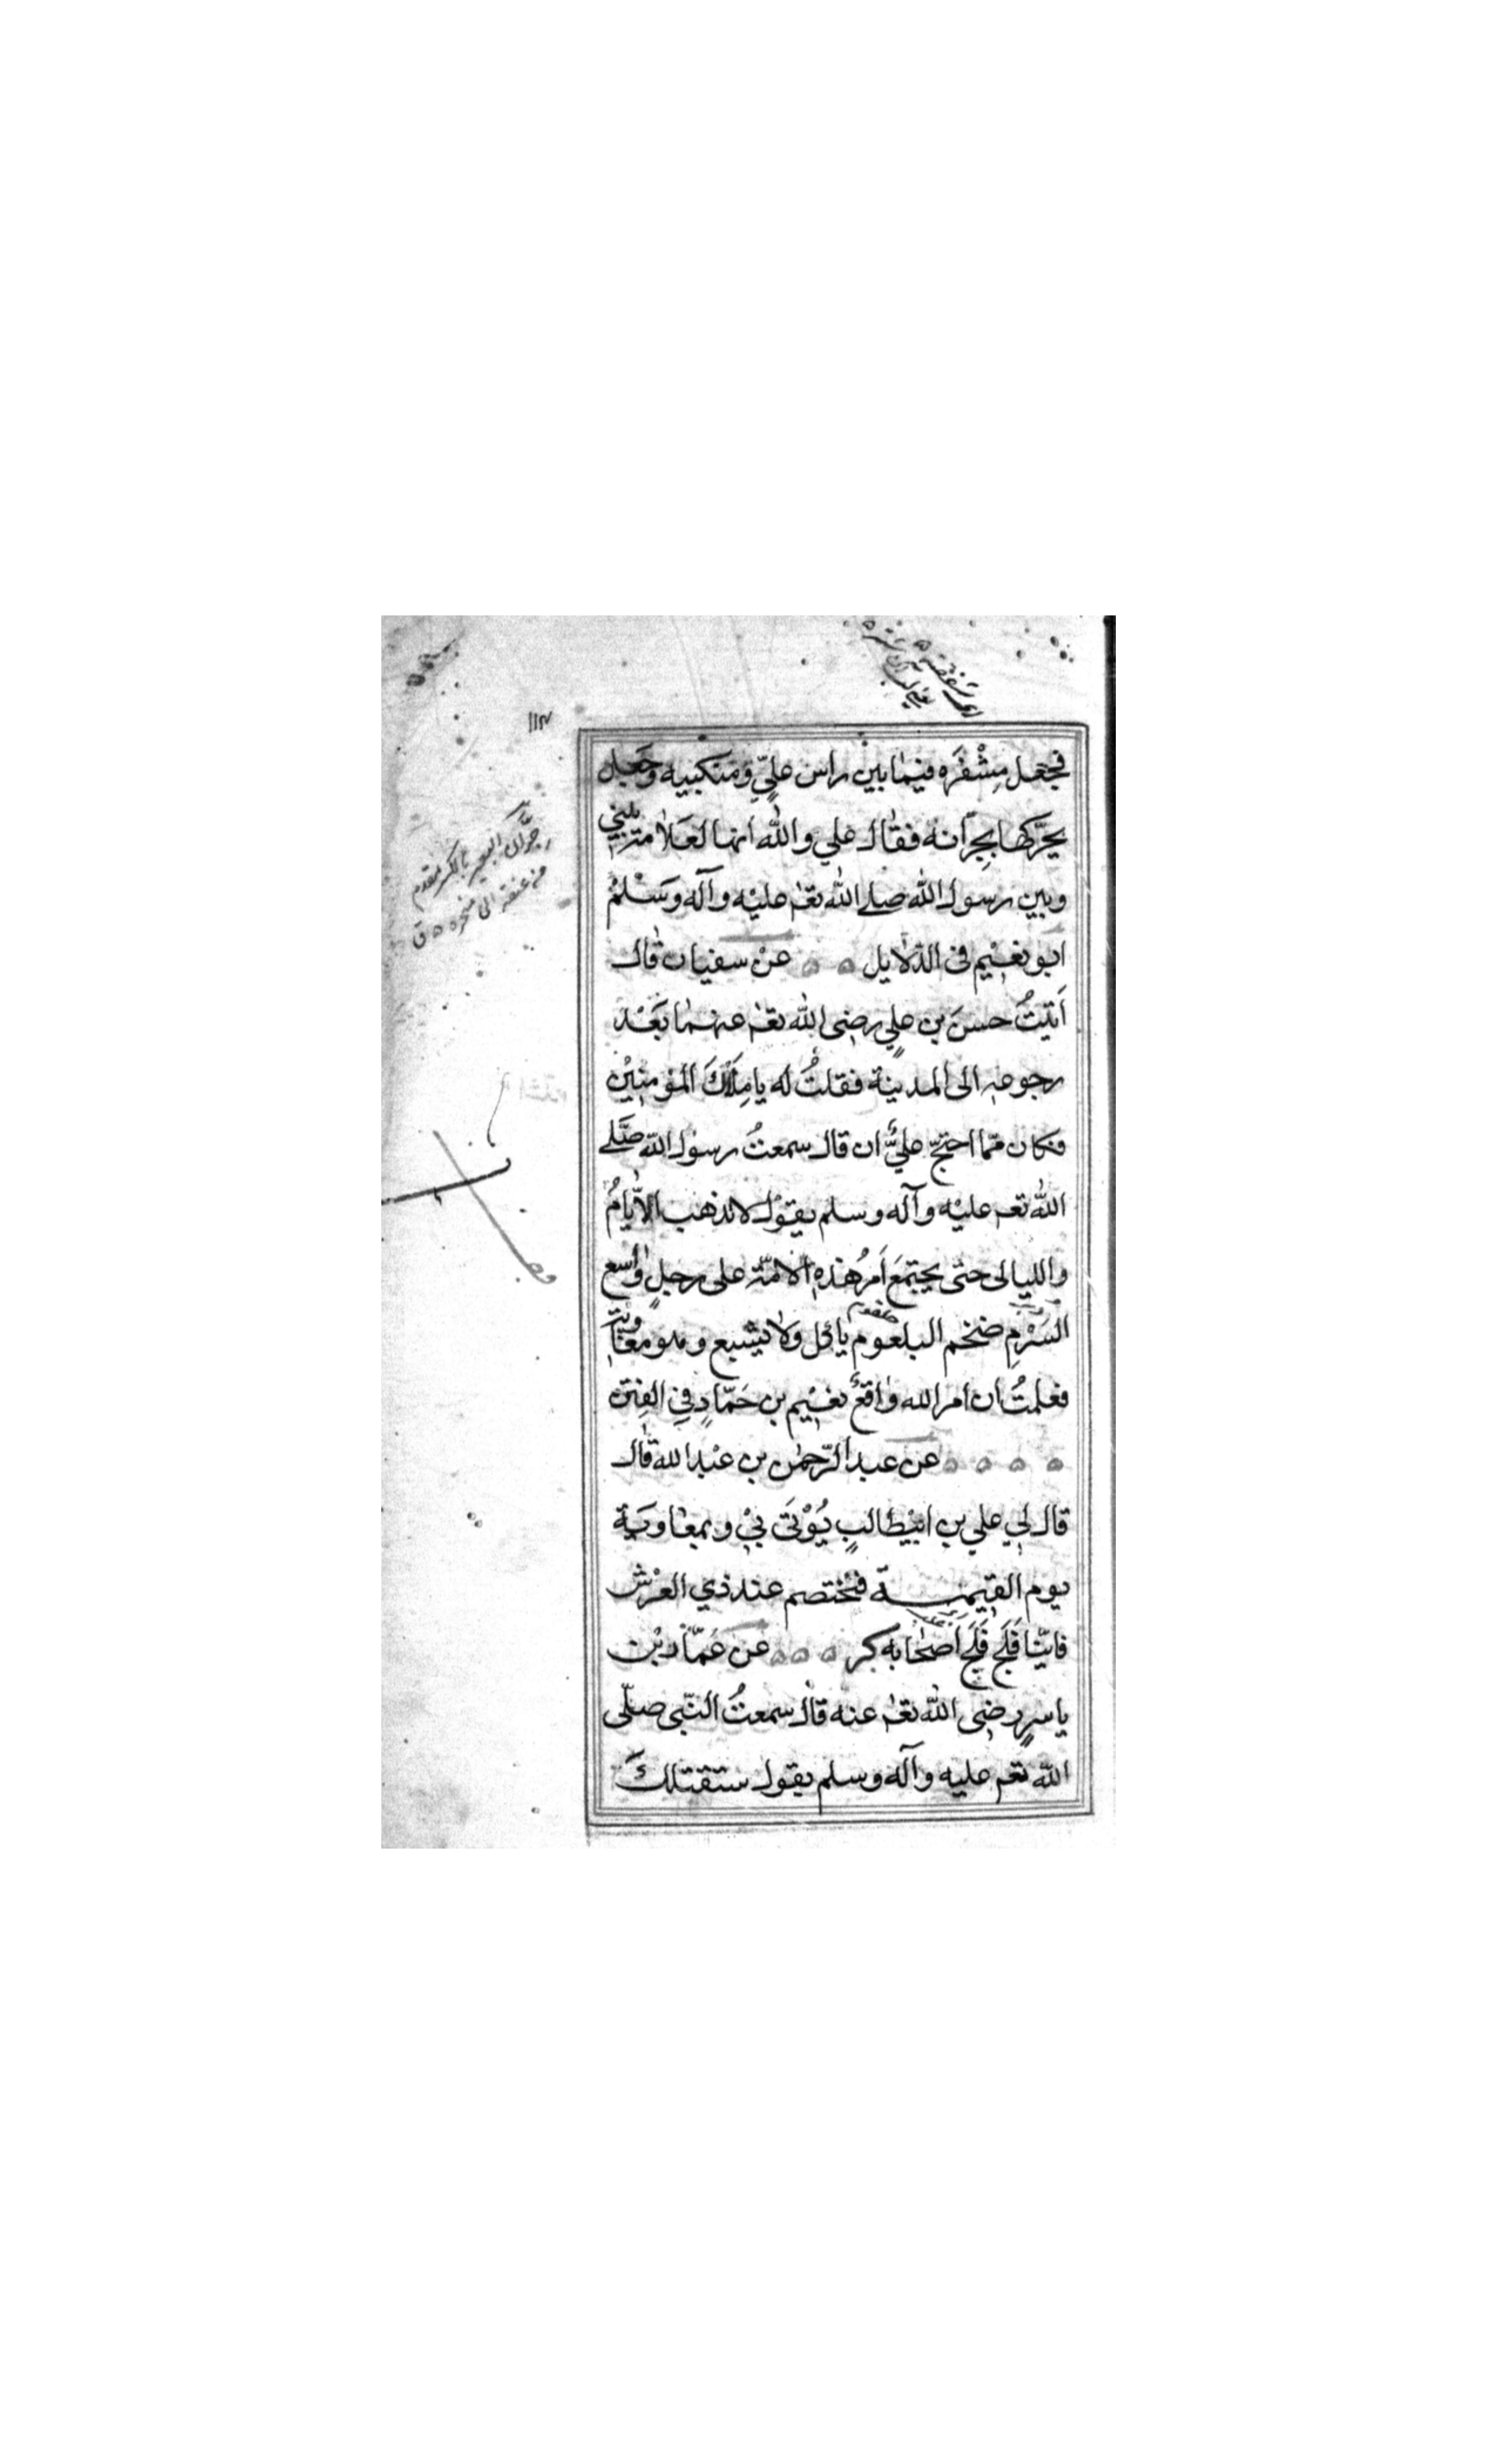 ١١٣
فجعل مِشْفَرَه فيما بين راس عليٍّ ومنكبيه وجَعل
يحرّكها بجِرّانه فقال علي والله انها لعَلامة بيني
وبين رسول الله صلى الله تعـ عليْه وآله وسَلم
ابو نعيم في الدلايل ه ه عنْ سفيان قال
اَتيتُ حسنَ بن عليٍ رضى الله تعـ عنهما بَعْد
رجوعه الى المدينة فقلتُ له يا مذلَّ المؤمنين
فكان ممّا احتجّ عليَّ ان قال سمعتُ رسول الله صَلى
الله تعـ عليْه وآله وسلم يقول لا تذهب الاَيامُ
والليالى حتى يجتمعَ اَمرُ هذه الامّة على رجلٍ واسع
السُرْمِ ضخم البلعوم ياكل ولا يشبع وهو معاوية
فعلمتُ ان امر الله واقعٌ نعيم بن حَمّادٍ في الفِتن
ه ه ه ه عن عبد الرّحمٰن بن عبد الله قال
قال لي علي بن ابيطالبٍ يُؤتَى بيْ وبمعاوية
يوم القيمـــة فنختصم عند ذي العرْش
فايّنا فَلَج فَلَج اَصحابه كر ه ه ه عن عَمّار بْن
ياسرٍ رضى الله تعـ عنه قال سمعتُ النّبى صلّى
الله تعـ عليه وآله وسلم يقول ستقتلك
جِرَّان البعير بالكسر مقدم
من عنقه الى منحره ه ق